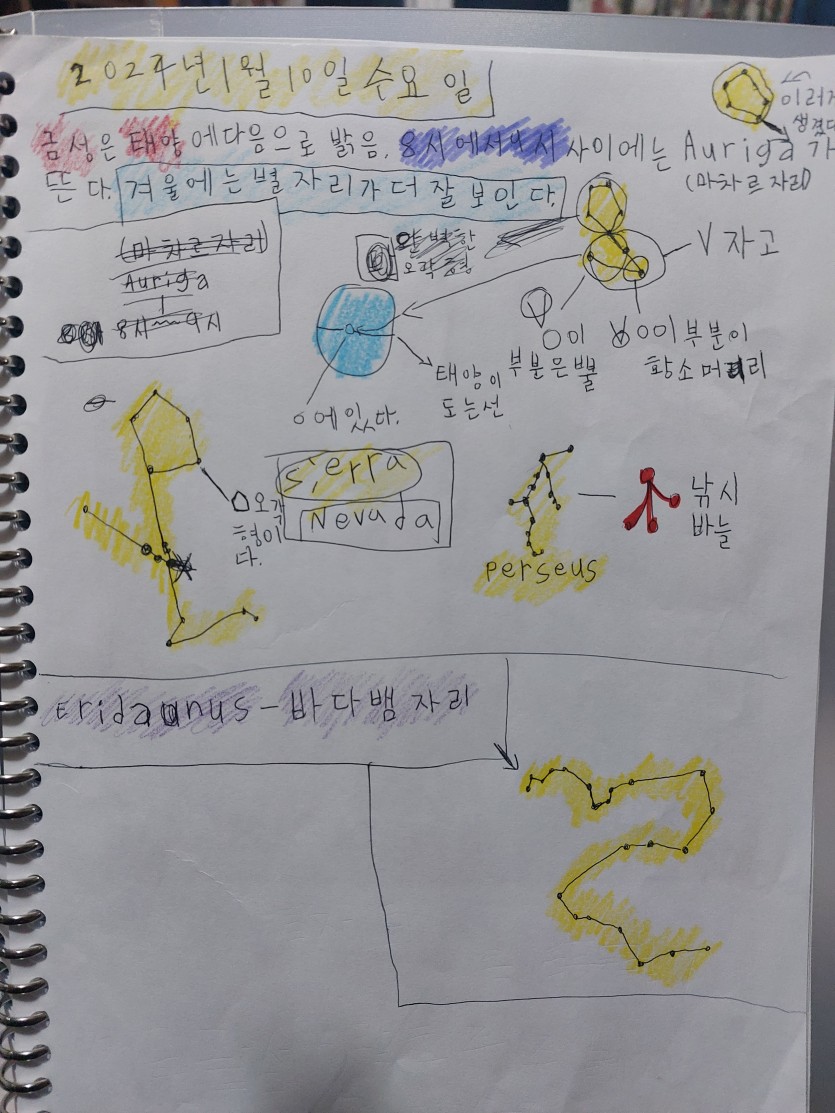 2024년 1월 10일 수요일
이러게
생겼다
금성은 태양에 다음으로 밝음. 8시에서 9시 사이에는 Auriga 가
(마차르자리)
뜬다. 겨울에는 별자리가 더 잘 보인다.
(마차르자리)
Auriga
8시~9시
오각형
V자고
태양이
도는선
에 있다.
이
부분은 뿔
이 부분이
황소머리
오각
형이
다.
Sierra
Nevada
낚시
바늘
perseus
Eridaunus - 바다뱀자리